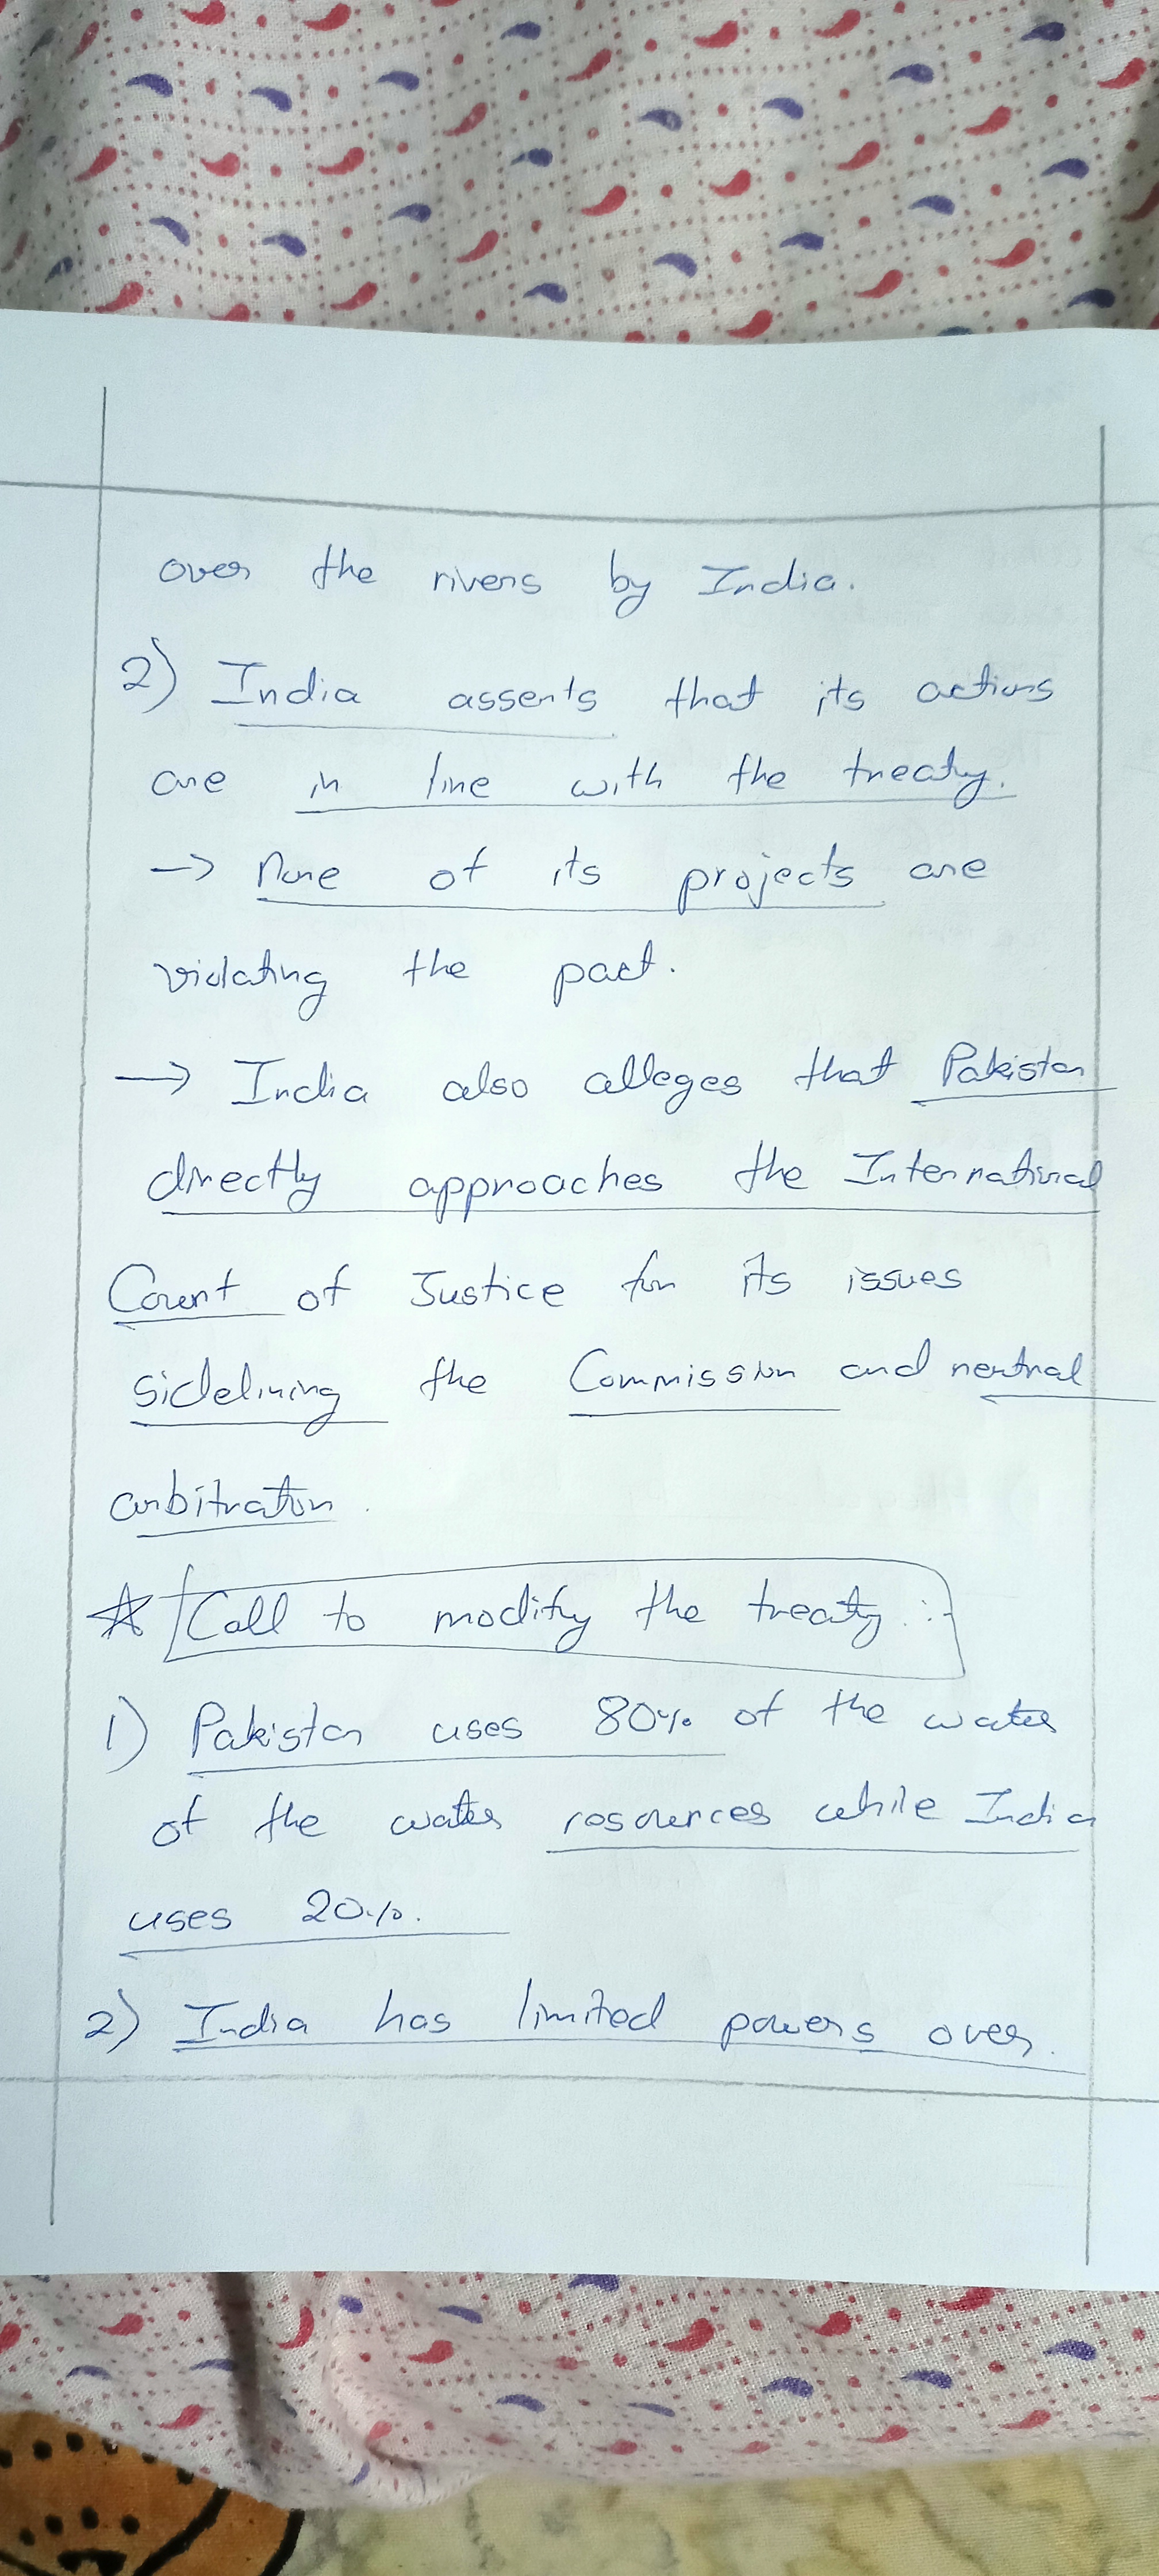 over the rivers by India.
2) India asserts that its actions
are in line with the treaty.
→ None of its projects are
violating the pact.
→ India also alleges that Pakistan
directly approaches the International
Court of Justice for its issues
sidelining the Commission and neutral
arbitration.
☆ Call to modify the treaty :-
1) Pakistan uses 80% of the water
of the water resources while India
uses 20%.
2) India has limited powers over.